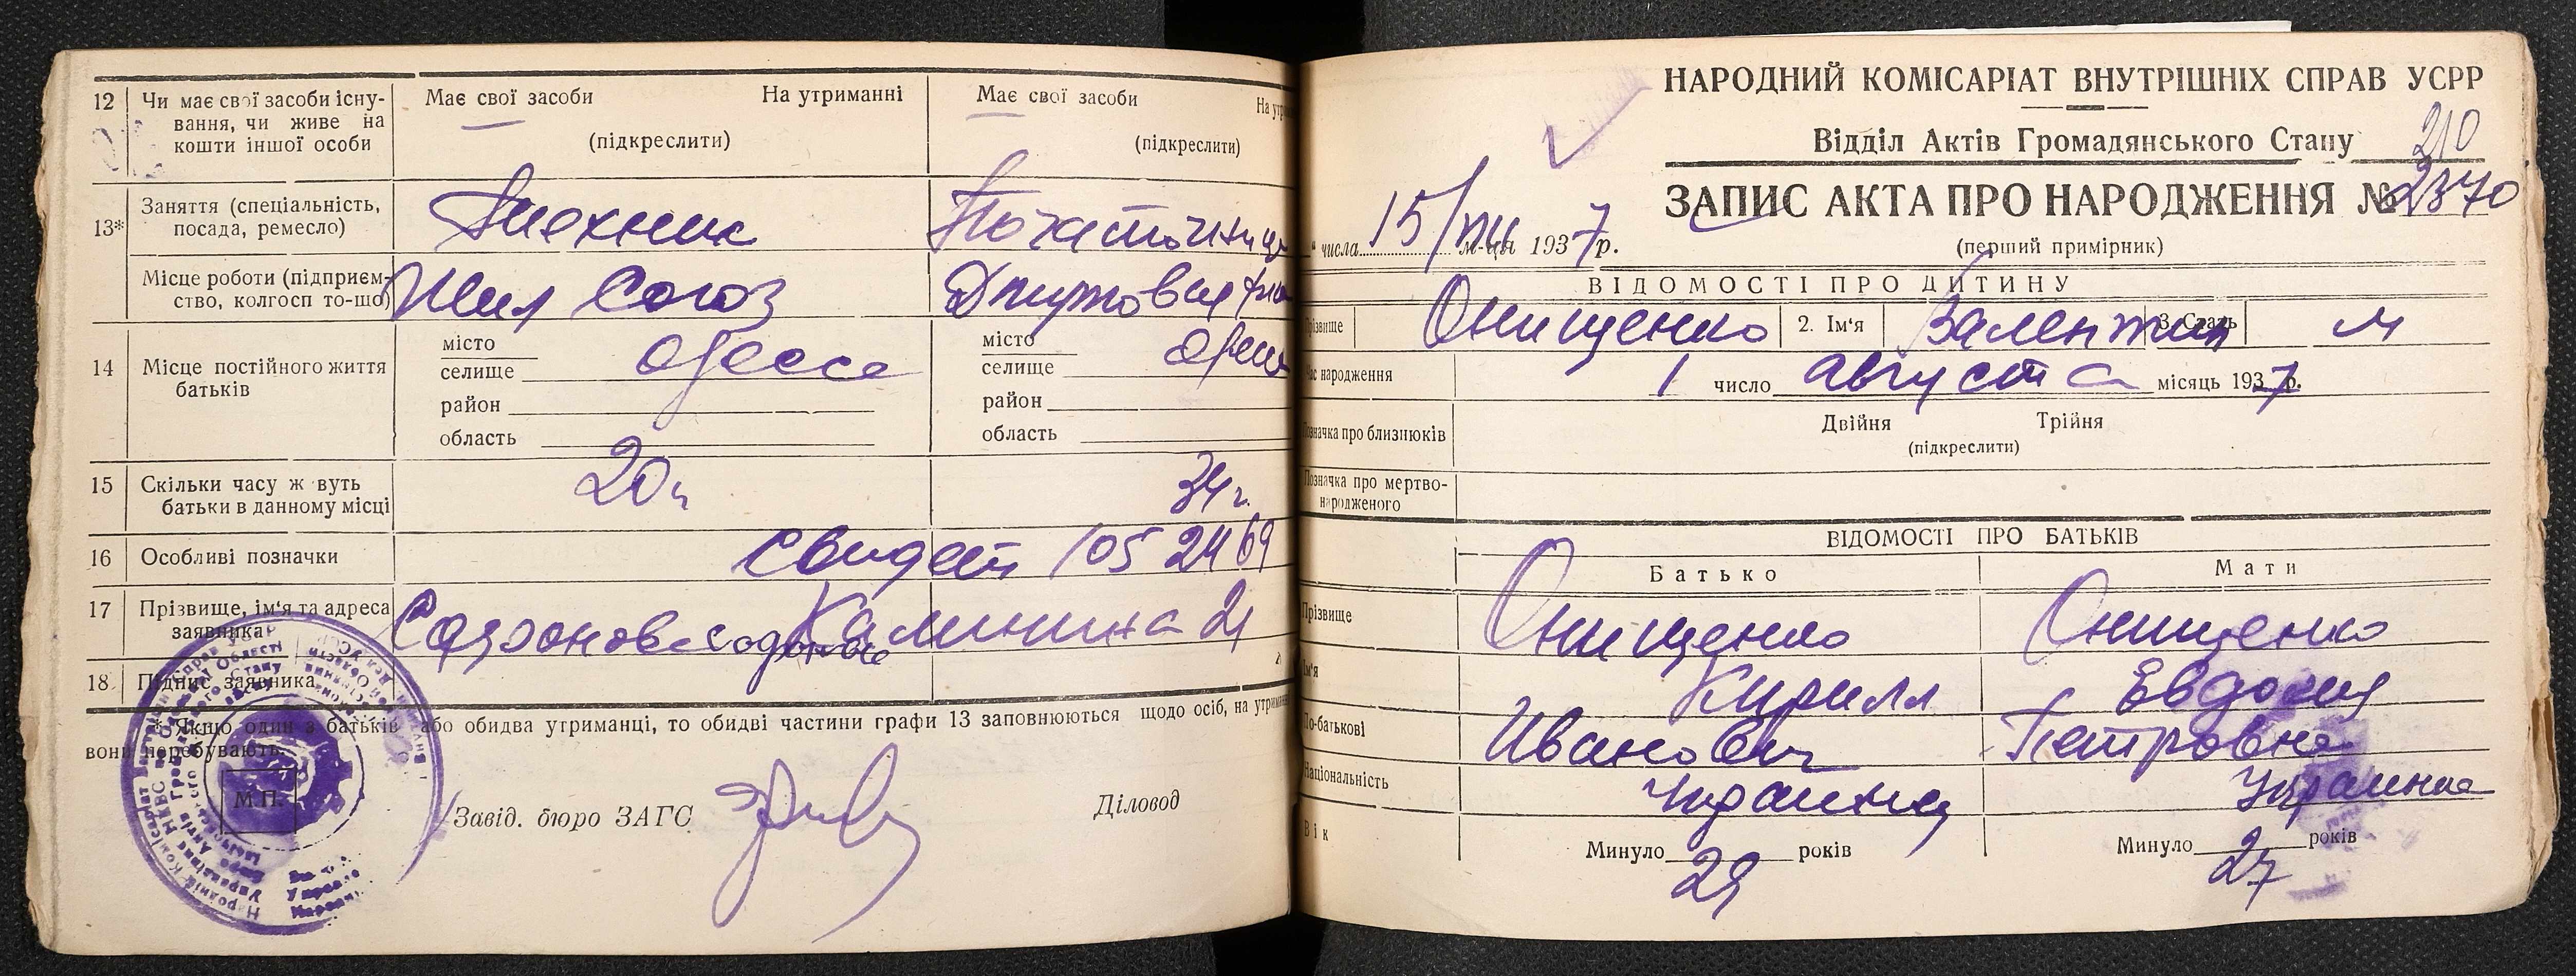 12 Чи має свої засоби існу-
вання, чи живе на
кошти іншої особи
Має свої засоби На утриманні
(підкреслити)
Має свої засоби
(підкреслити)
13* Заняття (спеціальність,
посада, ремесло)
Техник
Місце роботи (підприєм-
ство, колгосп то-що)
Жил Союз
14 Місце постійного життя
батьків
місто
селище Одесса
район
область
місто
селище
район
область
15 Скільки часу ж вуть
батьки в данному місці
20
34 г.
16 Особливі позначки
Свидет 1052469
17 Прізвище, ім'я та адреса
заявника
Калинина 21
18 Підпис заявника
* Якщо один з батьків або обидва утриманці, то обидві частини графи 13 заповнюються щодо осіб, на
вони перебувають.
М.П.
Завід. бюро ЗАГС
Діловод
НАРОДНИЙ КОМІСАРІАТ ВНУТРІШНІХ СПРАВ УСРР
Відділ Актів Громадянського Стану
210
ЗАПИС АКТА ПРО НАРОДЖЕННЯ № 2370
(перший примірник)
числа 15/VIII м-ця 1937 р.
ВІДОМОСТІ ПРО ДИТИНУ
Прізвище Онищенко 2. Ім'я Валентин 3. Стать м
Час народження 1 число августа місяць 1937 р.
Позначка про близнюків
Двійня Трійня
(підкреслити)
Позначка про мертво-
народженого
ВІДОМОСТІ ПРО БАТЬКІВ
Батько Мати
Прізвище Онищенко Онищенко
Ім'я Кирилл Евдокия
По-батькові Иванович Петровна
Національність Украинец Украинка
Вік Минуло 29 років Минуло 27 років